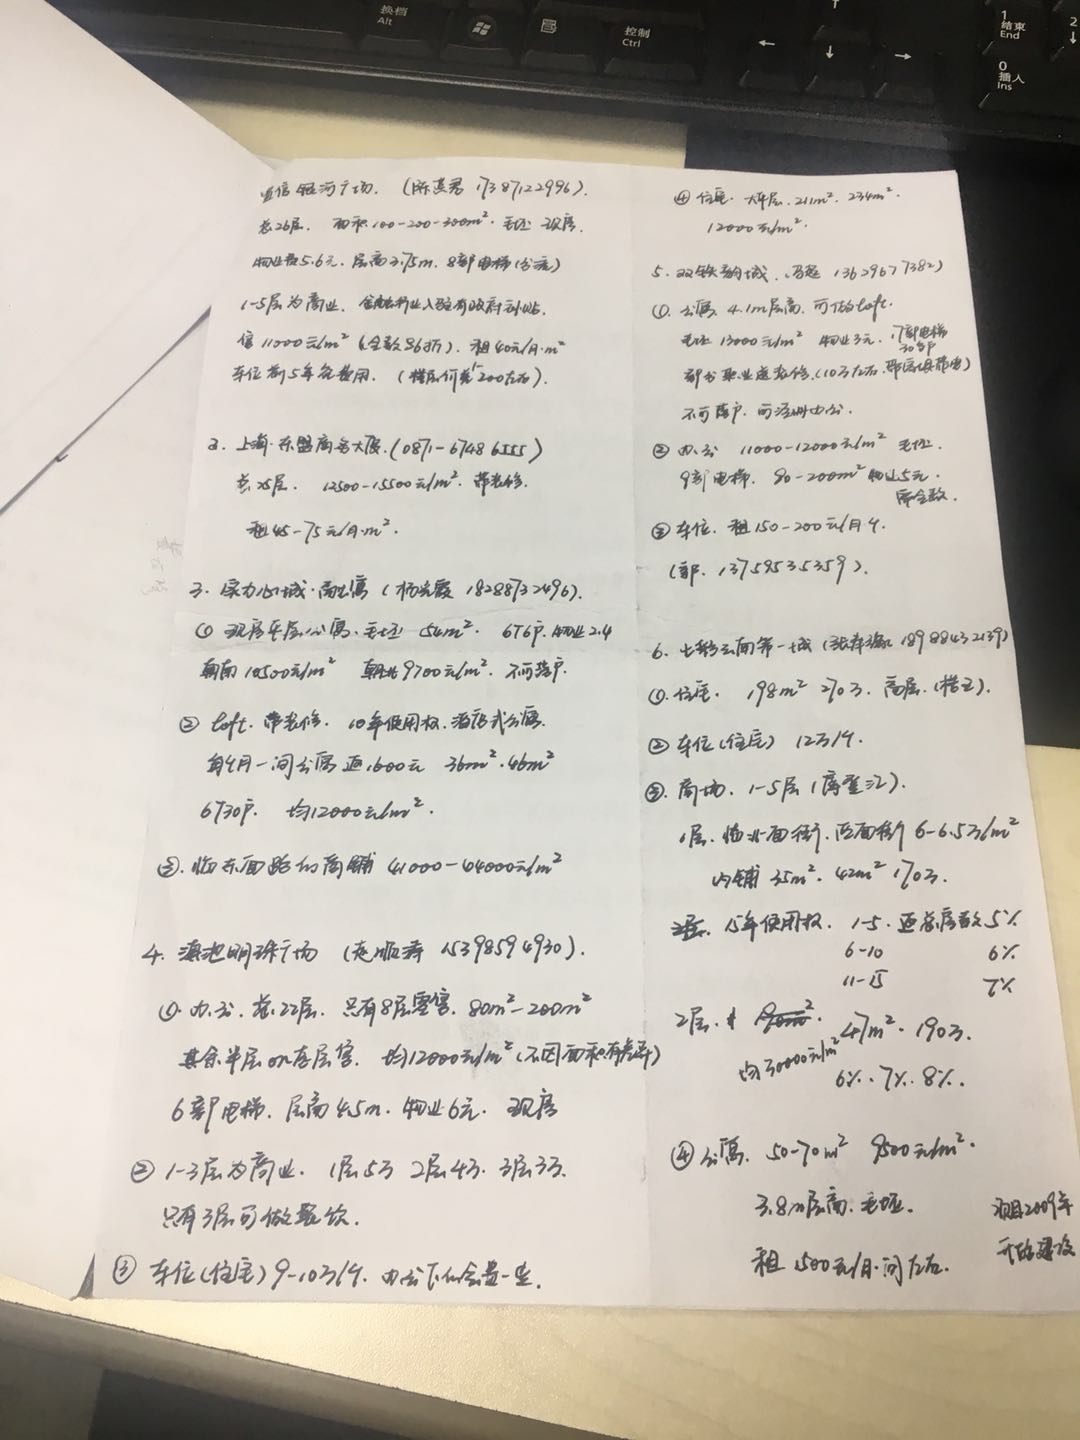 换档
Alt
控制
Ctrl
1
结束
End
2
0
插入
Ins
直信银河广场. (陈 君 17387122996).
总26层. 面积100-200-300m². 毛坯 现房.
物业费5.6元. 层高3.75m. 8部电梯(分区)
1-5层为商业. 金融行业入驻有政府补贴.
售11000元/m² (全款 折). 租40元/月·m²
车位前5年免费用. (楼层价差200左右).
2. 上海·东盟商务大厦. (0871-67486555)
总25层. 12500-15500元/m². 带装修.
租45-75元/月·m².
3. 实力心城·商公寓 (杨 霞 18288732496).
① 现房平层公寓. 毛坯 54m². 6T6户. 物业2.4
朝南10500元/m² 朝北9700元/m². 不可落户.
② loft. 带装修. 10年使用权. 酒店式公寓.
每个月一间公寓返1600元 36m². 46m²
6T30户. 均12000元/m².
③. 临东面路的商铺 41000-44000元/m²
4. 滇池明珠广场 (赵顺涛 15398594930).
①. 办公. 总22层. 只有8层零售. 80m²-200m²
其余半层or整层售. 均12000元/m² (不因面积有差异)
6部电梯. 层高4.5m. 物业6元. 现房
② 1-3层为商业. 1层5万 2层4万. 3层3万.
只有3层可做餐饮.
③ 车位(住宅) 9-10万/个. 办公下 会贵一些.
④ 住宅. 大平层. 211m². 234m².
12000元/m².
5. 双铁新城. (冯 13629677382)
①. 公寓. 4.1m层高. 可做loft.
毛坯 13000元/m² 物业3元. 7部电梯
30多户
部分 业 装修. (10万左右. 带家具带电)
不可落户. 可注册办公.
② 办公 11000-12000元/m² 毛坯.
9部电梯. 80-200m² 物业5元.
需全款.
③ 车位. 租150-200元/月·个.
(郭. 13759535359).
6. 七彩云南第一城 (张 18988432139)
①. 住宅. 198m² 270万. 高层. (楼王).
② 车位(住宅) 12万/个.
③. 商场. 1-5层 ( 汇).
1层. 临北面街. 西面街 6-6.5万/m²
内铺 35m². 42m² 170万.
15年使用权. 1-5. 返总房款5%
6-10 6%
11-15 7%
2层. 47m². 190万.
均30000元/m²
6%. 7%. 8%.
④ 公寓. 50-70m² 9500元/m².
3.8m层高. 毛坯.
租1500元/月·间左右.
项目2009年
开始建设